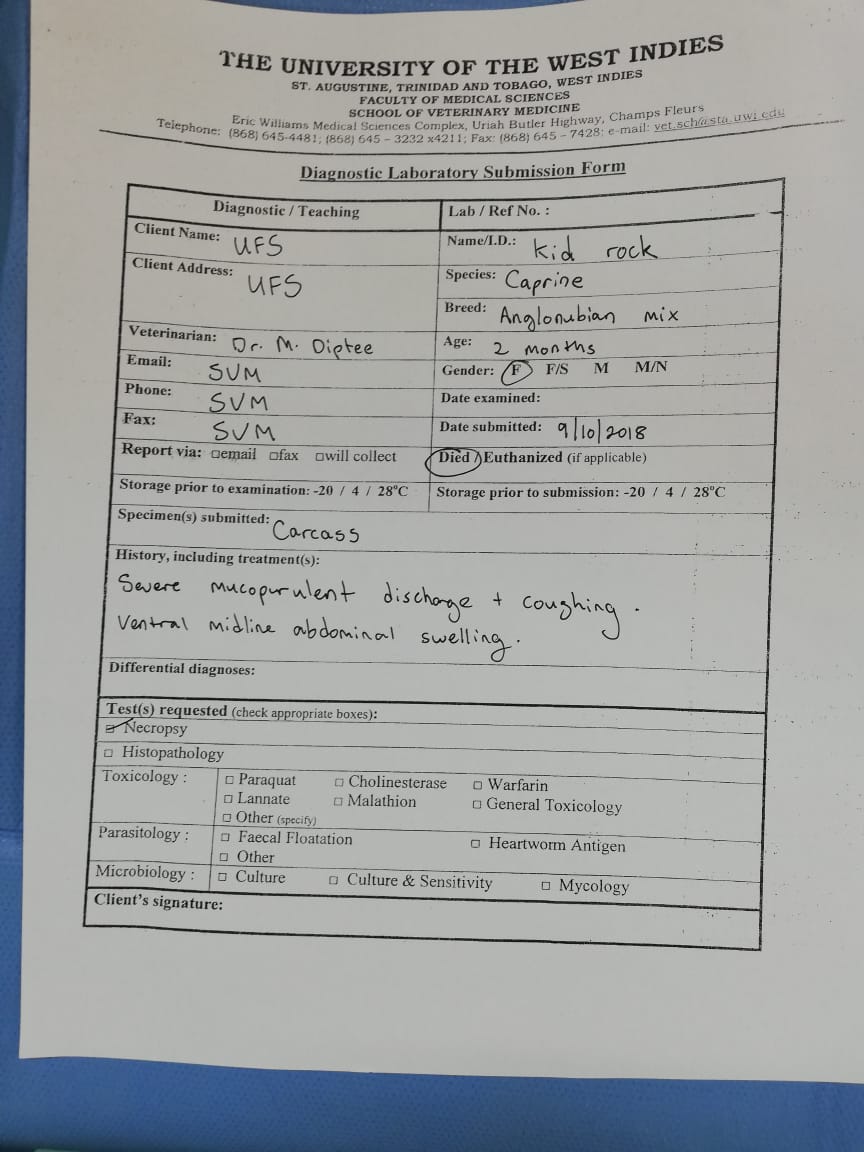 THE UNIVERSITY OF THE WEST INDIES
ST. AUGUSTINE, TRINIDAD AND TOBAGO, WEST INDIES
FACULTY OF MEDICAL SCIENCES
SCHOOL OF VETERINARY MEDICINE
Eric Williams Medical Sciences Complex, Uriah Butler Highway, Champs Fleurs
Telephone: (868) 645-4481; (868) 645 – 3232 x4211; Fax: (868) 645 – 7428; e-mail: vet.sch@sta.uwi.edu
Diagnostic Laboratory Submission Form
Diagnostic / Teaching
Lab / Ref No. :
Client Name: UFS
Name/I.D.: Kid rock
Client Address: UFS
Species: Caprine
Breed: Anglonubian mix
Veterinarian: Dr. M. Diptee
Age: 2 months
Email: SVM
Gender: F F/S M M/N
Phone: SVM
Date examined:
Fax: SVM
Date submitted: 9/10/2018
Report via: □email □fax □will collect
Died / Euthanized (if applicable)
Storage prior to examination: -20 / 4 / 28°C
Storage prior to submission: -20 / 4 / 28°C
Specimen(s) submitted: Carcass
History, including treatment(s):
Severe mucopurulent discharge + coughing.
Ventral midline abdominal swelling.
Differential diagnoses:
Test(s) requested (check appropriate boxes):
□ Necropsy
□ Histopathology
Toxicology : □ Paraquat □ Cholinesterase □ Warfarin
□ Lannate □ Malathion □ General Toxicology
□ Other (specify)
Parasitology : □ Faecal Floatation □ Heartworm Antigen
□ Other
Microbiology : □ Culture □ Culture & Sensitivity □ Mycology
Client's signature: